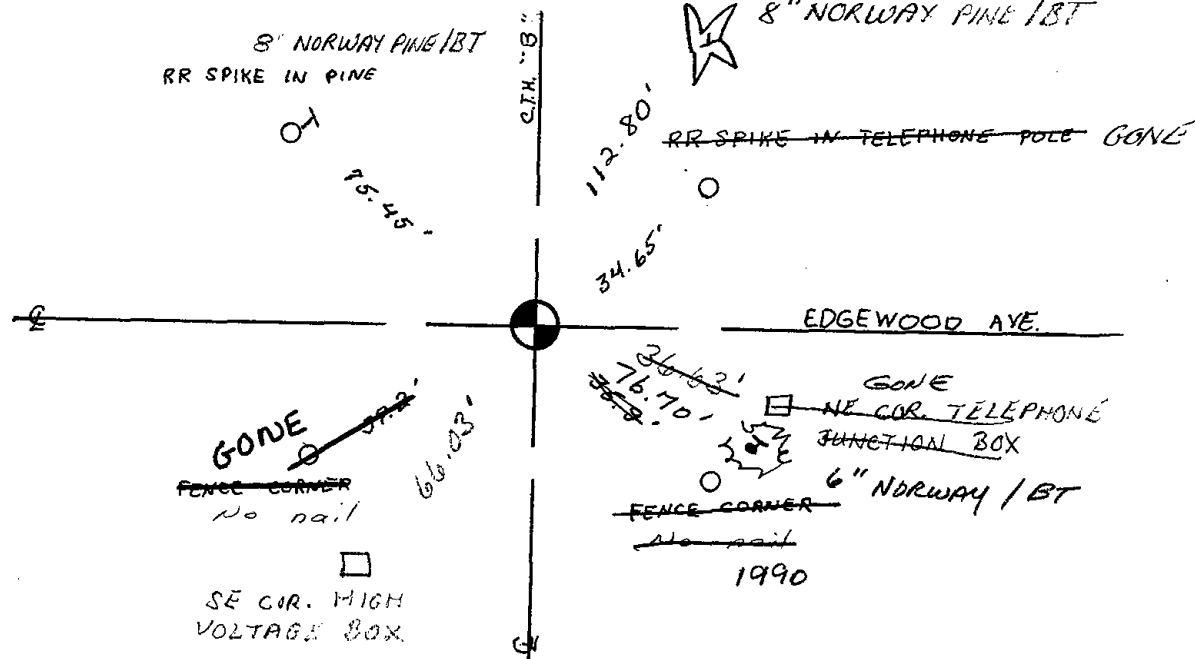 8" NORWAY PINE/BT
RR SPIKE IN PINE
C.T.H. "B"
8" NORWAY PINE/BT
RR SPIKE IN TELEPHONE POLE GONE
112.80'
75.45'
34.65'
℄
EDGEWOOD AVE.
36.63'
76.70'
GONE
NE COR. TELEPHONE
JUNCTION BOX
GONE
66.03'
FENCE CORNER
No nail
6" NORWAY / BT
FENCE CORNER
No nail
1990
SE COR. HIGH
VOLTAGE BOX
℄